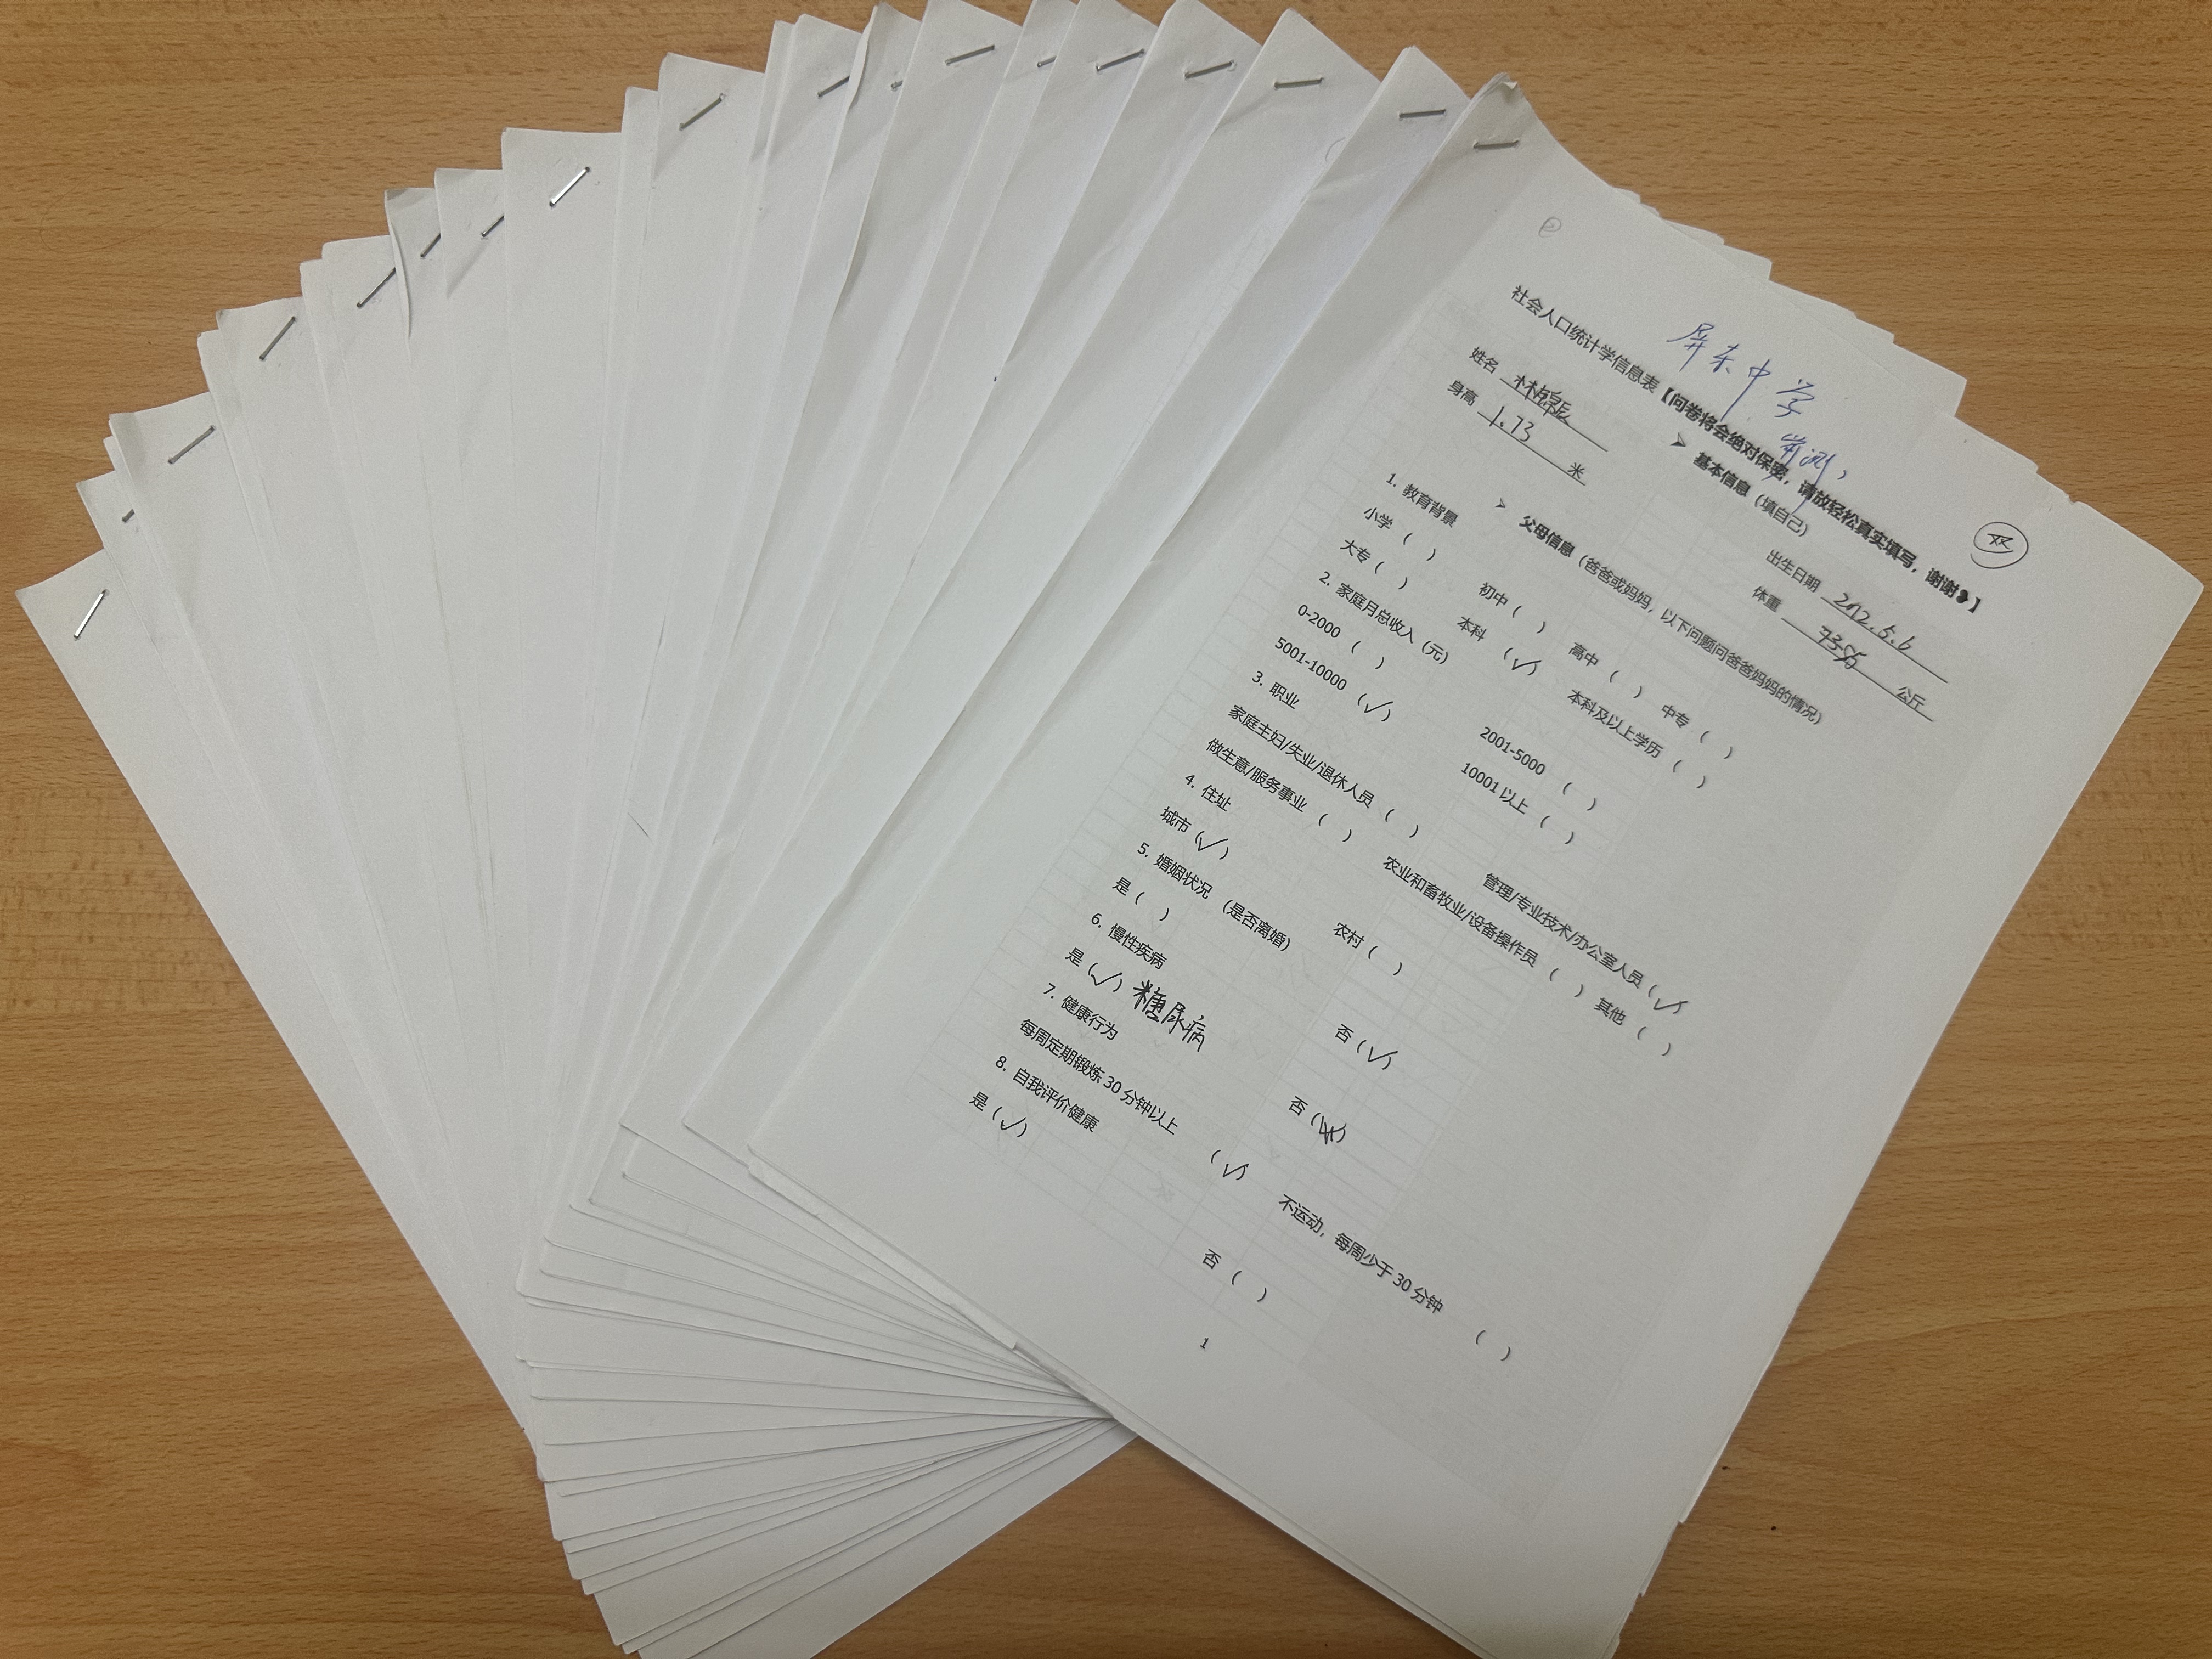 社会人口统计学信息表【问卷将会绝对保密，请放轻松真实填写，谢谢❥】
➤ 基本信息（填自己）
姓名 出生日期 2012.5.6
身高 1.73 米 体重 公斤
➤ 父母信息（爸爸或妈妈，以下问题问爸爸妈妈的情况）
1. 教育背景
小学（ ） 初中（ ） 高中（ ） 中专（ ）
大专（ ） 本科（√） 本科及以上学历（ ）
2. 家庭月总收入（元）
0-2000（ ） 2001-5000（ ）
5001-10000（√） 10001以上（ ）
3. 职业
家庭主妇/失业/退休人员（ ） 管理/专业技术/办公室人员（√）
做生意/服务事业（ ） 农业和畜牧业/设备操作员（ ） 其他（ ）
4. 住址
城市（√） 农村（ ）
5. 婚姻状况（是否离婚）
是（ ） 否（√）
6. 慢性疾病
是（√）糖尿病 否（ ）
7. 健康行为
每周定期锻炼30分钟以上（√） 不运动，每周少于30分钟（ ）
8. 自我评价健康
是（√） 否（ ）
1